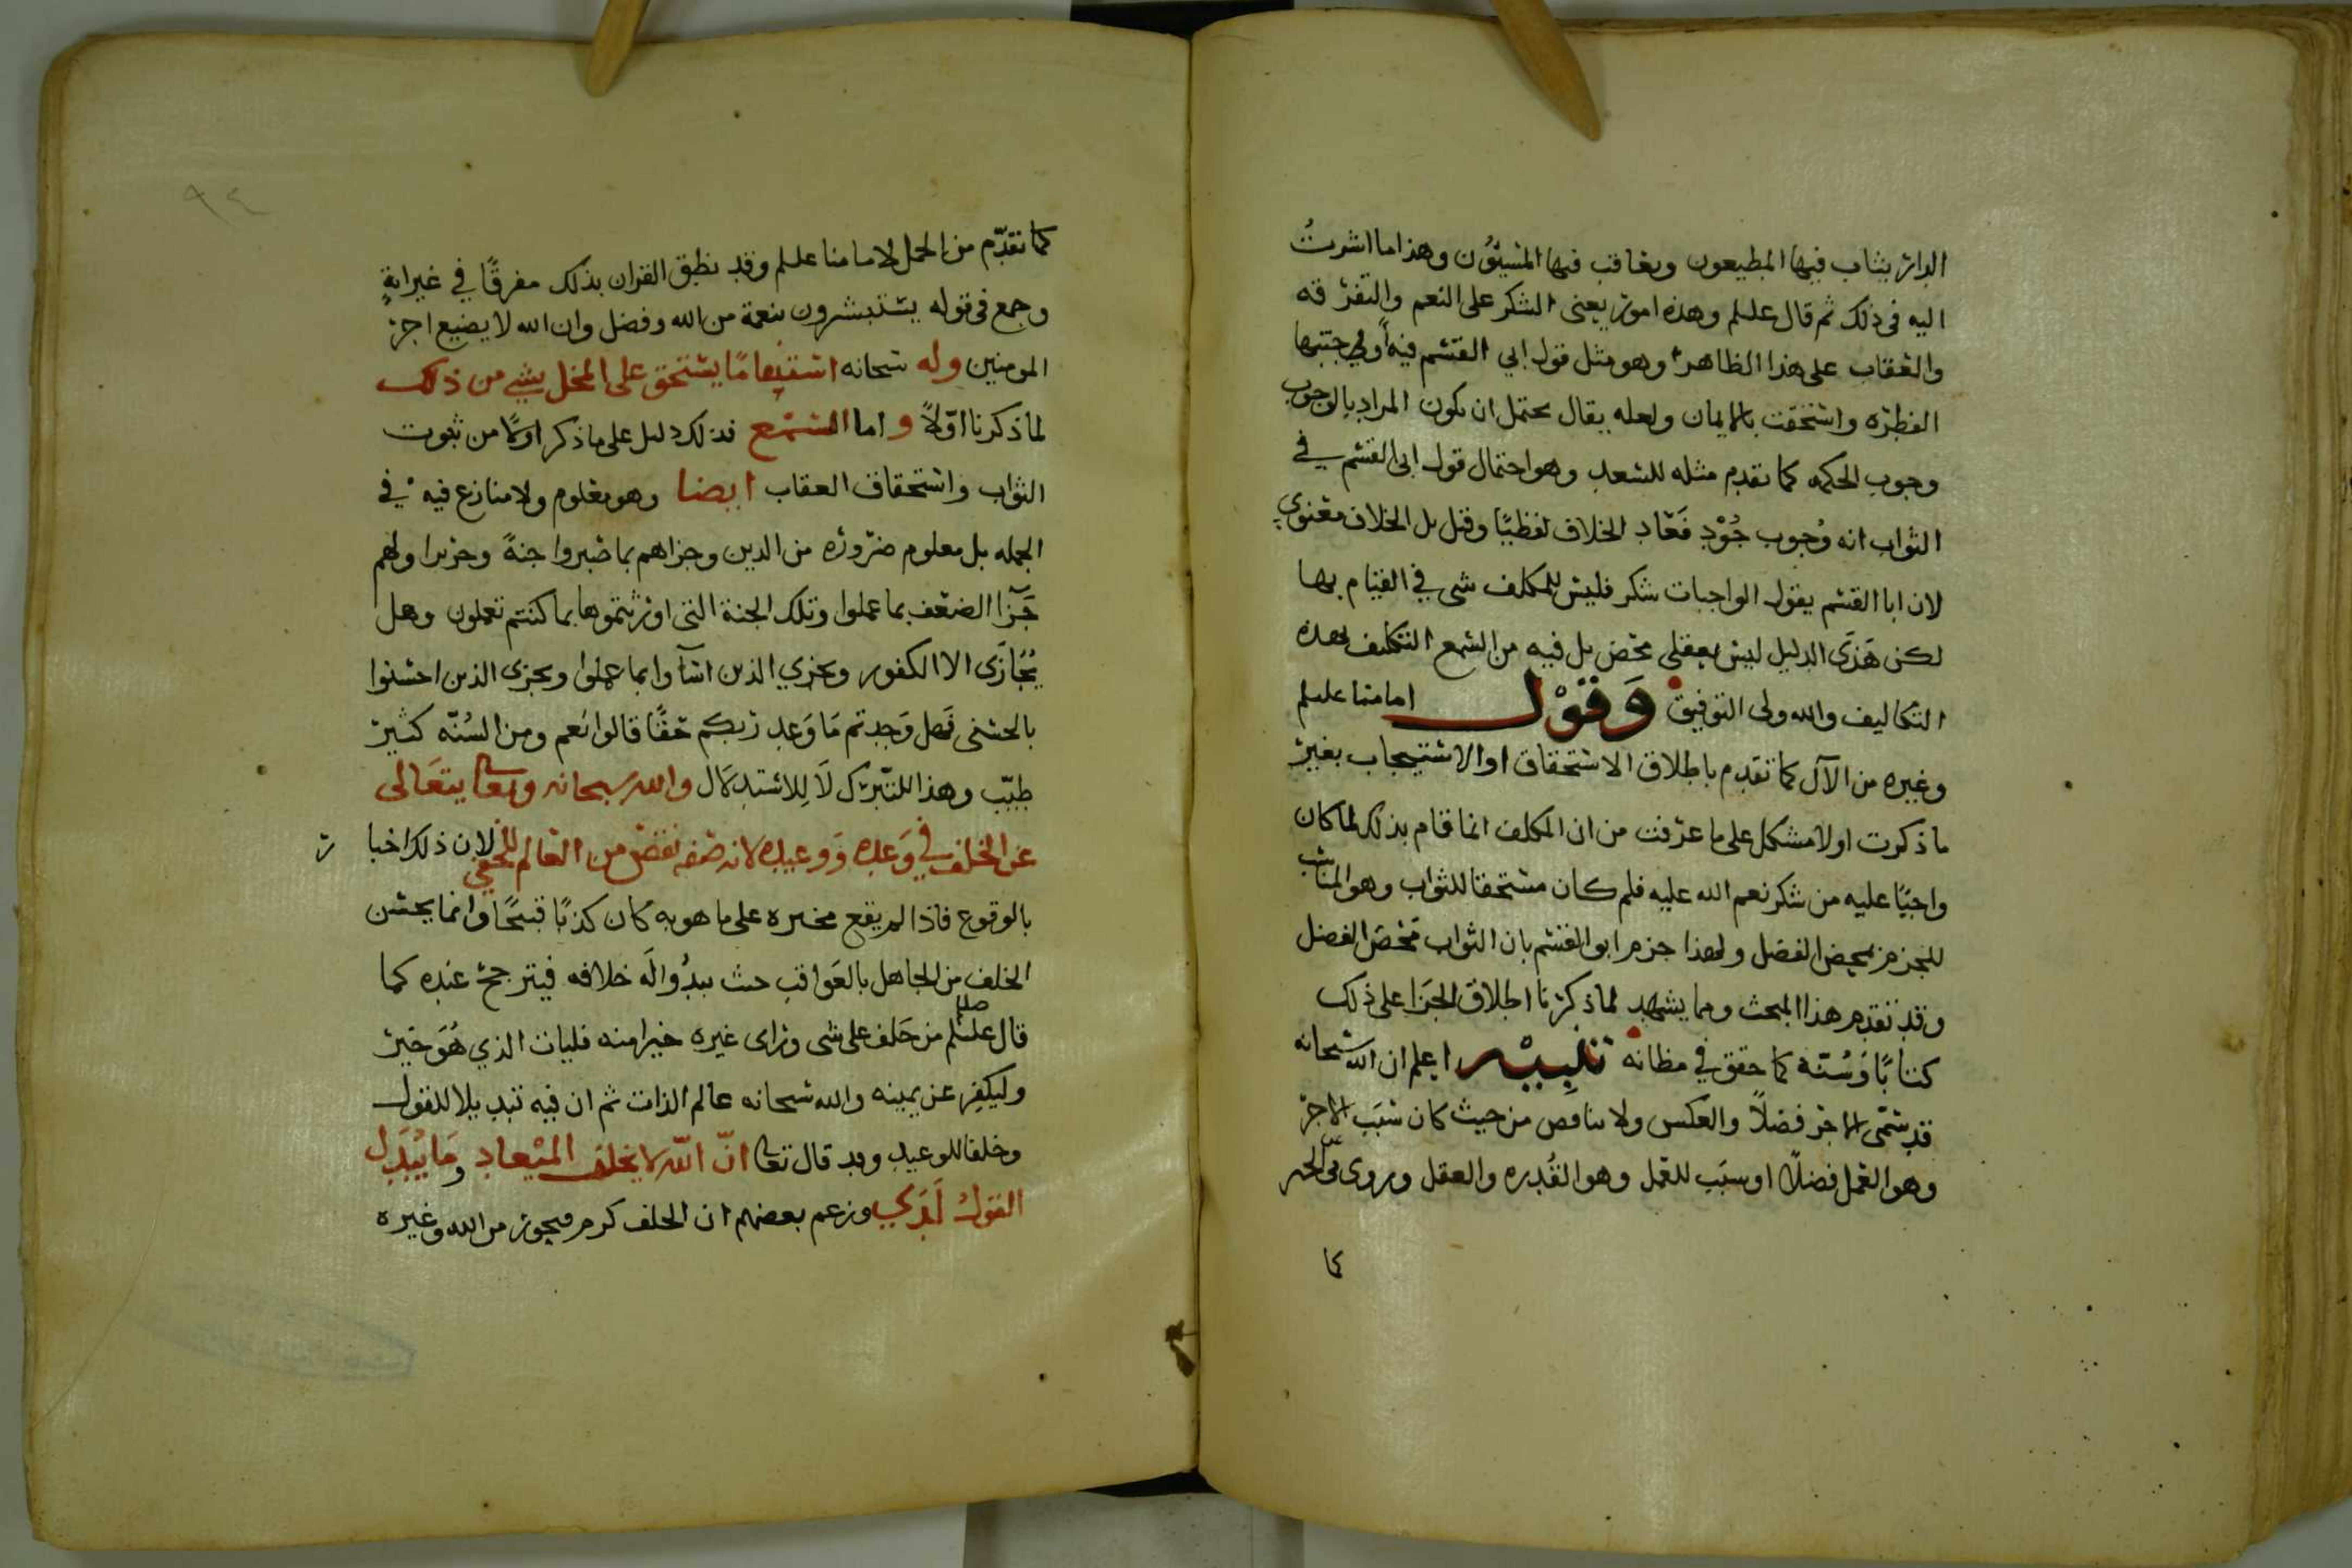 الدار يثاب فيها المطيعون ويعاقب فيها المسيئون وهذا ما اشرتُ
اليه في ذلك ثم قال علىلم وهذه امور يعني الشكر على النعم والتفرقه
والعقاب على هذا الظاهر وهو مثل قول ابي القسم فيه أولي جنبها
الفطره واستحقت بالايمان ولعله يقال يحتمل ان يكون المراد بالوجوب
وجوب الحكمه كما تقدم مثله للسعد وهو احتمال قول ابي القسم في
الثواب انه وُجوب جُوْدٍ فَعَاد الخلاف لفظيًا وقيل بل الخلاف معنوي
لان ابا القسم يقول الواجبات شكر فليس للمكلف شي في القيام بها
لكن هَذَى الدليل ليس بعقلي محض بل فيه من السمع التكليف بهذه
التكاليف والله ولى التوفيق وَقَوْل امامنا علىلم
وغيره من الآل كما تقدم باطلاق الاستحقاق او الاستيجاب بغير
ما ذكرت اولا مشكل على ما عرفت من ان المكلف انما قام بذلك لما كان
واجبًا عليه من شكر نعم الله عليه فلم كان مستحقا للثواب وهو المناسب
للجزم بمحض الفضل ولهذا جزم ابو القسم بان الثواب محض الفضل
وقد تقدم هذا المبحث ومما يشهد لما ذكرنا اطلاق الجزا على ذلك
كتابًا وَسُنّة كما حقق في مظانه تَنْبِيْه اعلم ان الله سبحانه
قد سَمّى الاجر فضلًا والعكس ولا تناقض من حيث كان سَبَب الاجر
وهو العمل فضلًا او سبَب للعمل وهو القُدره والعقل وروى
كما
٩٤
كما تقدّم من الحمل لامامنا علىلم وقد نطق القران بذلك مفرقًا في غير ايةٍ
وجمع في قوله يستبشرون بنعمة من الله وفضل وان الله لا يضيع اجر
المومنين وله سبحانه اسقاط ما يستحق على المخل بشي من ذلك
لما ذكرنا اوّلًا واما السَّمْع فذلك دليل على ما ذكر اولًا من ثبوت
الثواب واستحقاق العقاب ايضا وهو معلوم ولا منازع فيه في
الجمله بل معلوم ضروره من الدين وجزاهم بما صبروا جنةً وحريرا ولهم
جَزَآ الضعف بما عملوا وتلك الجنة التي اورثتموها بما كنتم تعملون وهل
يُجَازَى الا الكفور ويجزي الذين اسآوا بما عملوا ويجزى الذين احسنوا
بالحسنى فهل وَجدتم مَا وَعد ربكم حقًا قالوا نَعم ومن السُنّه كثير
طيّب وهذا للتّبرّك لَا لِلاستدلال والله سبحانه وتعالى يتعَالى
عن الخلف في وَعده وَوعيده لانه صفه نقص من العالم الحقي لان ذلك اخبار
بالوقوع فاذا لم يقع مخبره على ما هو به كان كذبًا قبيحًا وانما يحسن
الخلف من الجاهل بالعَواقب حيث يبدُوا لَه خلافه فيترجح عنده كما
قال صلى علىلم من حَلف على شى وراى غيره خيرا منه فليات الذي هُوَ خَير
وليكفِر عن يمينه والله سبحانه عالم الذات ثم ان فيه تبديلا للقول
وخلفا للوعيد وقد قال تعالى انّ الله لا يخلف الميْعاد ومَا يُبَدَل
القولُ لَدَيّ وزعم بعضهم ان الخلف كرم فيجوز من الله وغيره